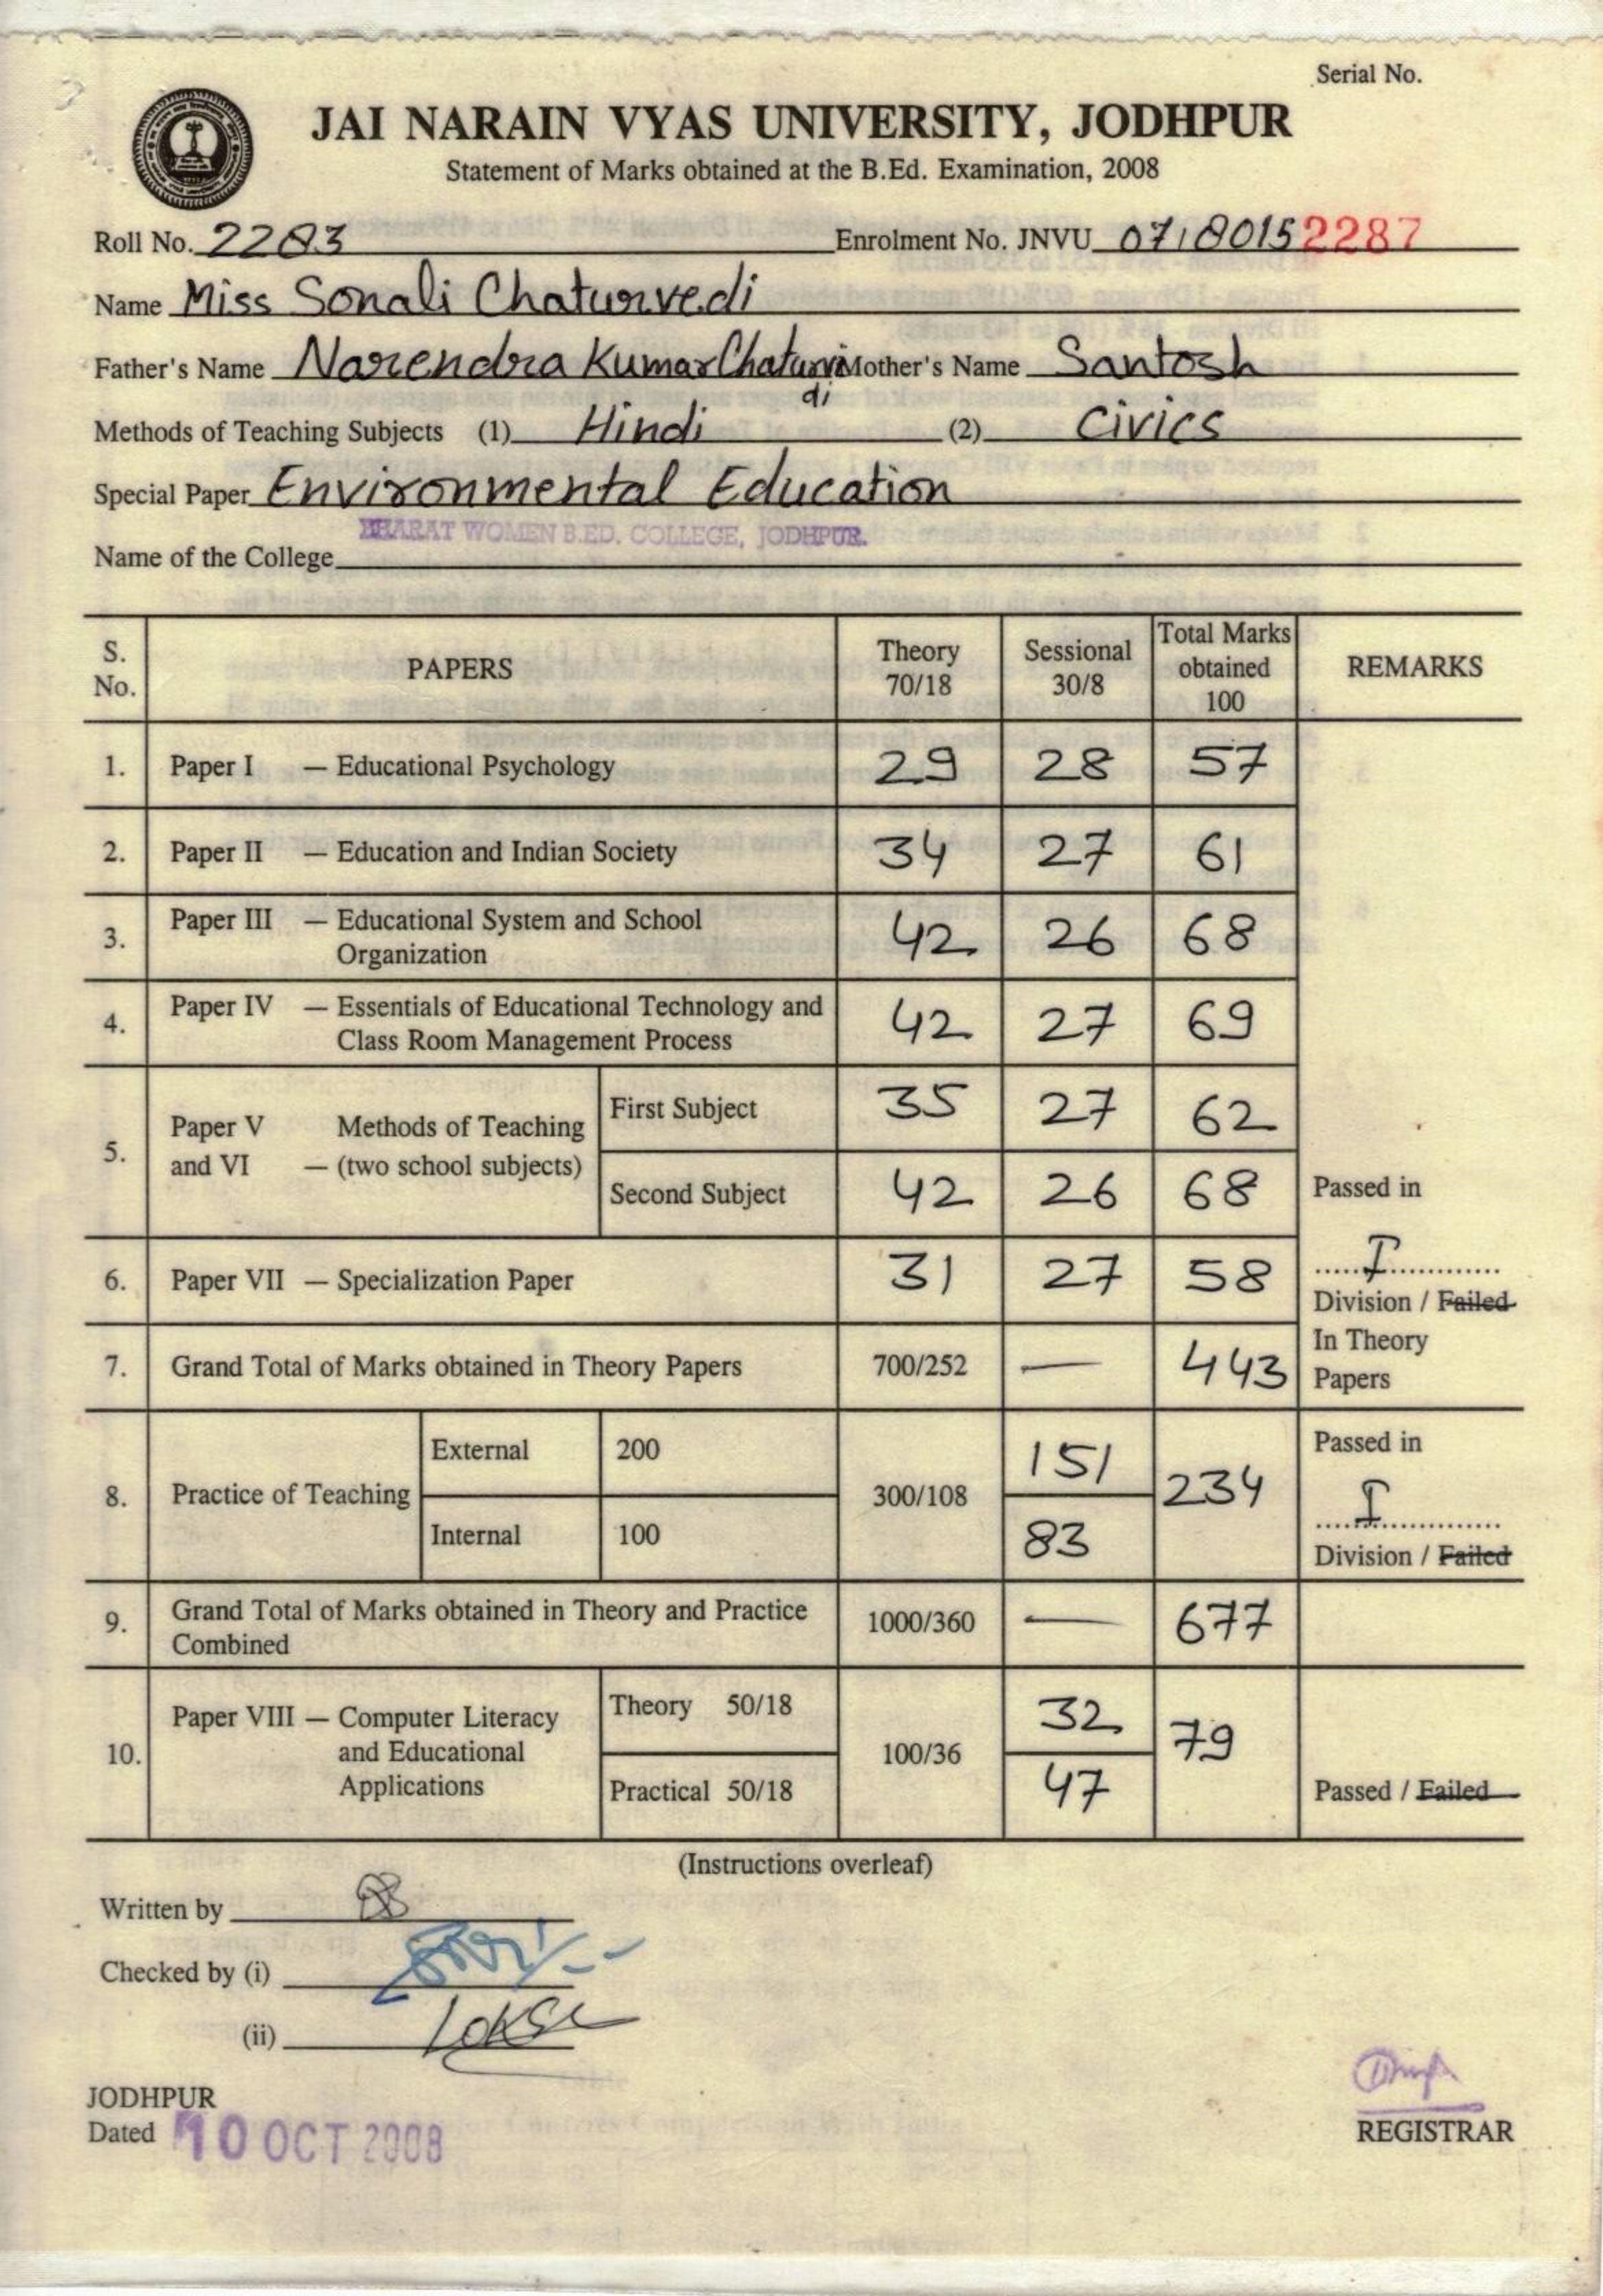 Serial No.
JAI NARAIN VYAS UNIVERSITY, JODHPUR
Statement of Marks obtained at the B.Ed. Examination, 2008
Roll No. 2283 Enrolment No. JNVU 07/80152287
Name Miss Sonali Chaturvedi
Father's Name Narendra Kumar Chaturvedi Mother's Name Santosh
Methods of Teaching Subjects (1) Hindi (2) Civics
Special Paper Environmental Education
BHARAT WOMEN B.ED. COLLEGE, JODHPUR.
Name of the College
S. No. PAPERS Theory 70/18 Sessional 30/8 Total Marks obtained 100 REMARKS
1. Paper I — Educational Psychology 29 28 57
2. Paper II — Education and Indian Society 34 27 61
3. Paper III — Educational System and School Organization 42 26 68
4. Paper IV — Essentials of Educational Technology and Class Room Management Process 42 27 69
5. Paper V and VI — Methods of Teaching (two school subjects) First Subject 35 27 62
Second Subject 42 26 68
6. Paper VII — Specialization Paper 31 27 58
7. Grand Total of Marks obtained in Theory Papers 700/252 — 443
Passed in
I
Division / Failed
In Theory
Papers
8. Practice of Teaching External 200 300/108 151 234
Internal 100 83
Passed in
I
Division / Failed
9. Grand Total of Marks obtained in Theory and Practice Combined 1000/360 — 677
10. Paper VIII — Computer Literacy and Educational Applications Theory 50/18 100/36 32 79
Practical 50/18 47 Passed / Failed
(Instructions overleaf)
Written by
Checked by (i)
(ii)
JODHPUR
Dated 10 OCT 2008
REGISTRAR